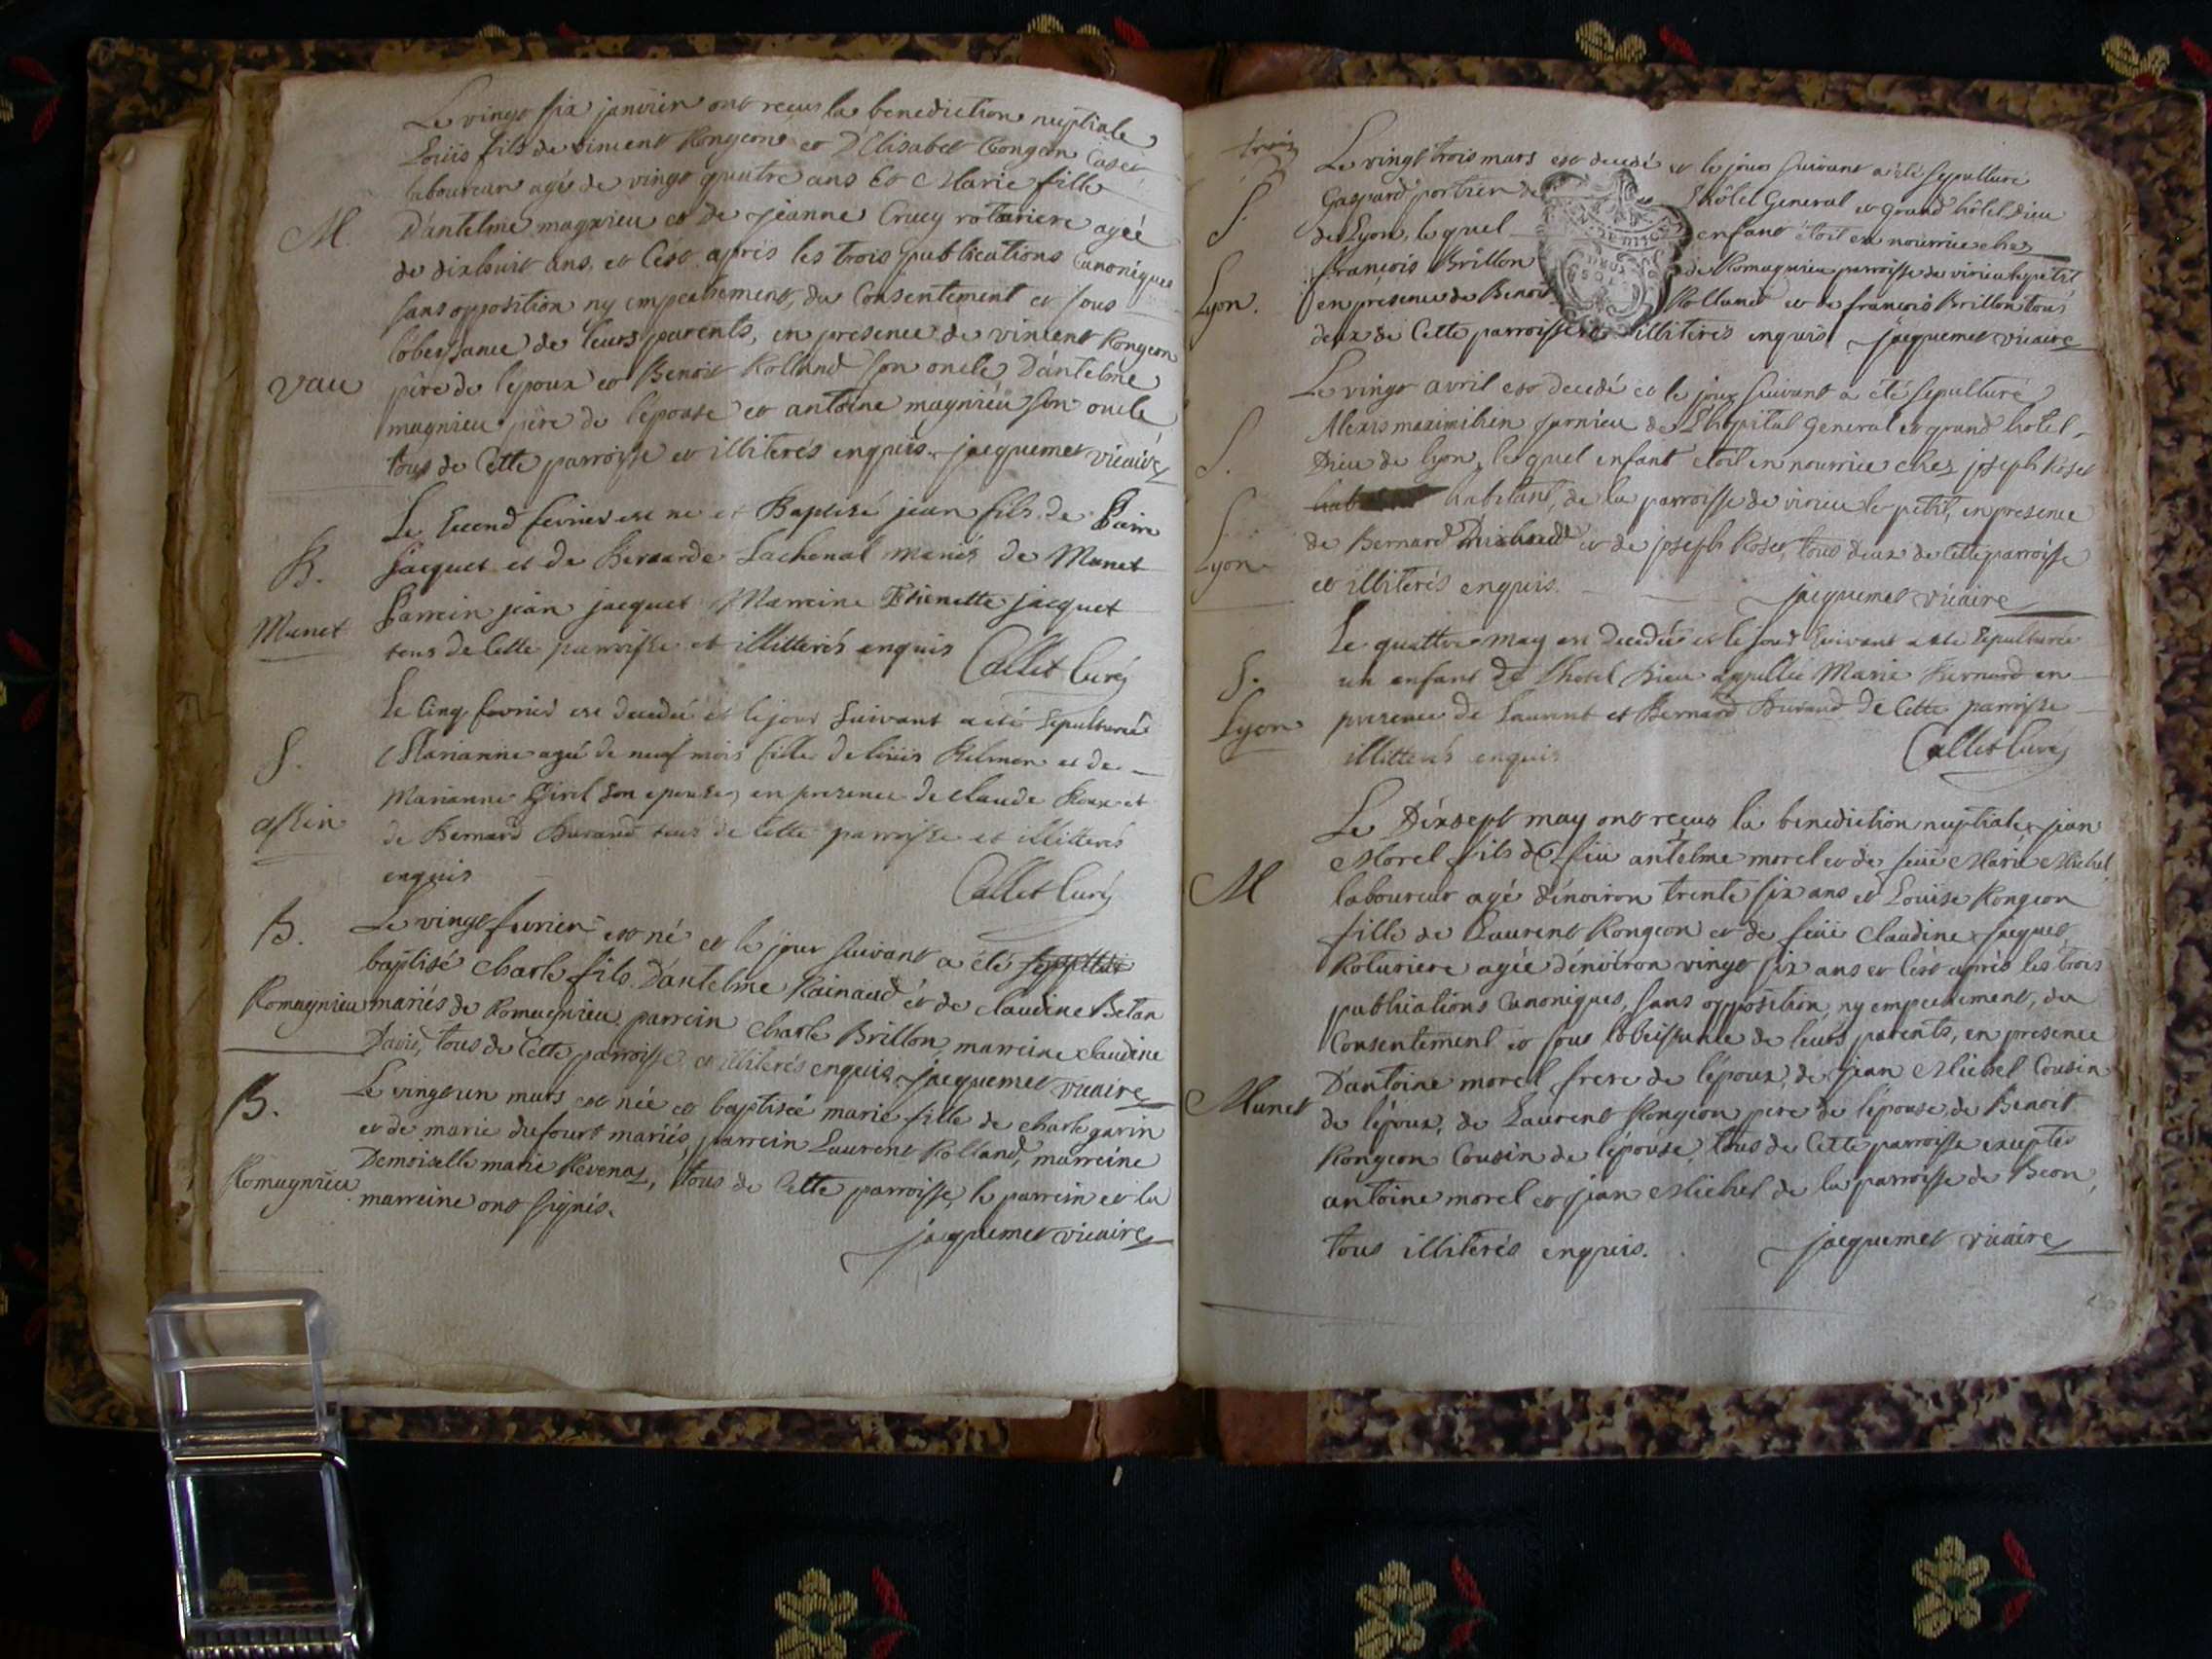 Le vingt six janvier ont recus la benediction nuptiale
Loüis fils de vincent Rongeon et D'Elisabet Rongeon
laboureur agé de vingt quatre ans et Marie fille
M. D'antelme magnieu et de jeanne Crucy roturiere ageé
de dixhuit ans, et C'ést apprés les trois publications Canoniques
sans opposition ny empechement, du Consentement et sous
l'obeissance de leurs parents, en presence de vincent Rongeon
vau pére de l'epoux et Benoit Rolland son oncle, D'antelme
magnieu pére de l'epouse et antoine magnieu son oncle
tous de Cette parroisse et illiterés enquis. jacquemet vicaire
Le Second fevrier est né et Baptisé jean fils de
B. jacquet et de Bernarde Lachenal mariés de Munet
Munet Parrein jean jacquet Marreine Etienette jacquet
tous de Cette parroisse et illitterés enquis Callet Curé
Le Cinq fevrier est decedé et le jour Suivant a eté Sepulturée
S. Marianne ageé de neuf mois fille de loüis et de
Marianne Girel Son epouse, en presence de claude Roux et
assin de Bernard Burand tous de Cette parroisse et illitterés
enquis Callet Curé
B. Le vingt fevrier est né et le jour suivant a été
baptisé charle fils D'antelme Rainaud et de claudine Betan
Romagnieu mariés de Romagnieu, parrein charle Brillon, marreine claudine
David, tous de Cette parroisse et illiterés enquis. jacquemet vicaire
B. Le vingt un mars est née et baptisée marie fille de charle garin
et de marie dufourt mariés, parrein Laurent Rolland, marreine
Demoiselle marie Revenaz, tous de Cette parroisse, le parrein et la
Romagnieu. marreine ont signés.
jacquemet vicaire
trois
Le vingt trois mars est decedé et le jour suivant a été sepulturé
S. Gaspard portier de l'hôtel General et grand hôtel Dieu
de Lyon, le quel enfant étoit en nourrice chez
Lyon. françois Brillon de Romagnieu parroisse de virieu le petit
en presence de Benoit Rolland et de françois Brillon tous
deux de Cette parroisse et illiterés enquis jacquemet vicaire
Le vingt avril est decedé et le jour suivant a été sepulturé
Alexis maximilien furnieu de L'hopital General et grand hotel
S. Dieu de lyon, le quel enfant étoit en nourrice chez joseph Roset
habitant, de la parroisse de virieu le petit, en presence
Lyon de Bernard et de joseph Roset, tous deux de Cette parroisse
et illiterés enquis. jacquemet vicaire
Le quattre may est decedeé et le jour Suivant a eté Sepulturée
S. un enfant de l'hotel Dieu appellée Marie Bernard en
Lyon presence de Laurent et Bernard Burand de Cette parroisse
illitterés enquis Callet Curé
Le Dixsept may ont reçus la benediction nuptiale, jean
Morel fils de feu antelme morel et de feüe Marie Michel,
M laboureur agé d'énviron trente six ans et Louise Rongeon
fille de Laurent Rongeon et de feüe Claudine jacquet
Roturiere agée d'énviron vingt six ans et C'ést aprés les trois
publications Canoniques, sans opposition, ny empechement, du
Consentement et sous l'obeissance de leurs parents, en presence
D'antoine morel frere de l'époux, de jean Michel Cousin
Munet de l'époux, de Laurent Rongeon pere de l'épouse, de Benoit
Rongeon Cousin de l'épouse, tous de Cette parroisse exeptés
antoine morel et jean Michel de la parroisse de Beon,
tous illiterés enquis. jacquemet vicaire